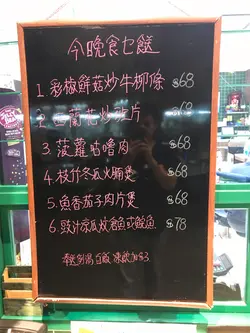 今晚食乜餸
1. 彩椒鮮菇炒牛柳條 $68
2. 西蘭花炒班片 $68
3. 菠蘿咕嚕肉 $68
4. 枝竹冬瓜火腩煲 $68
5. 魚香茄子肉片煲 $68
6. 豉汁涼瓜炆 魚或鮁魚 $78
例湯 白飯 凍飲加$3